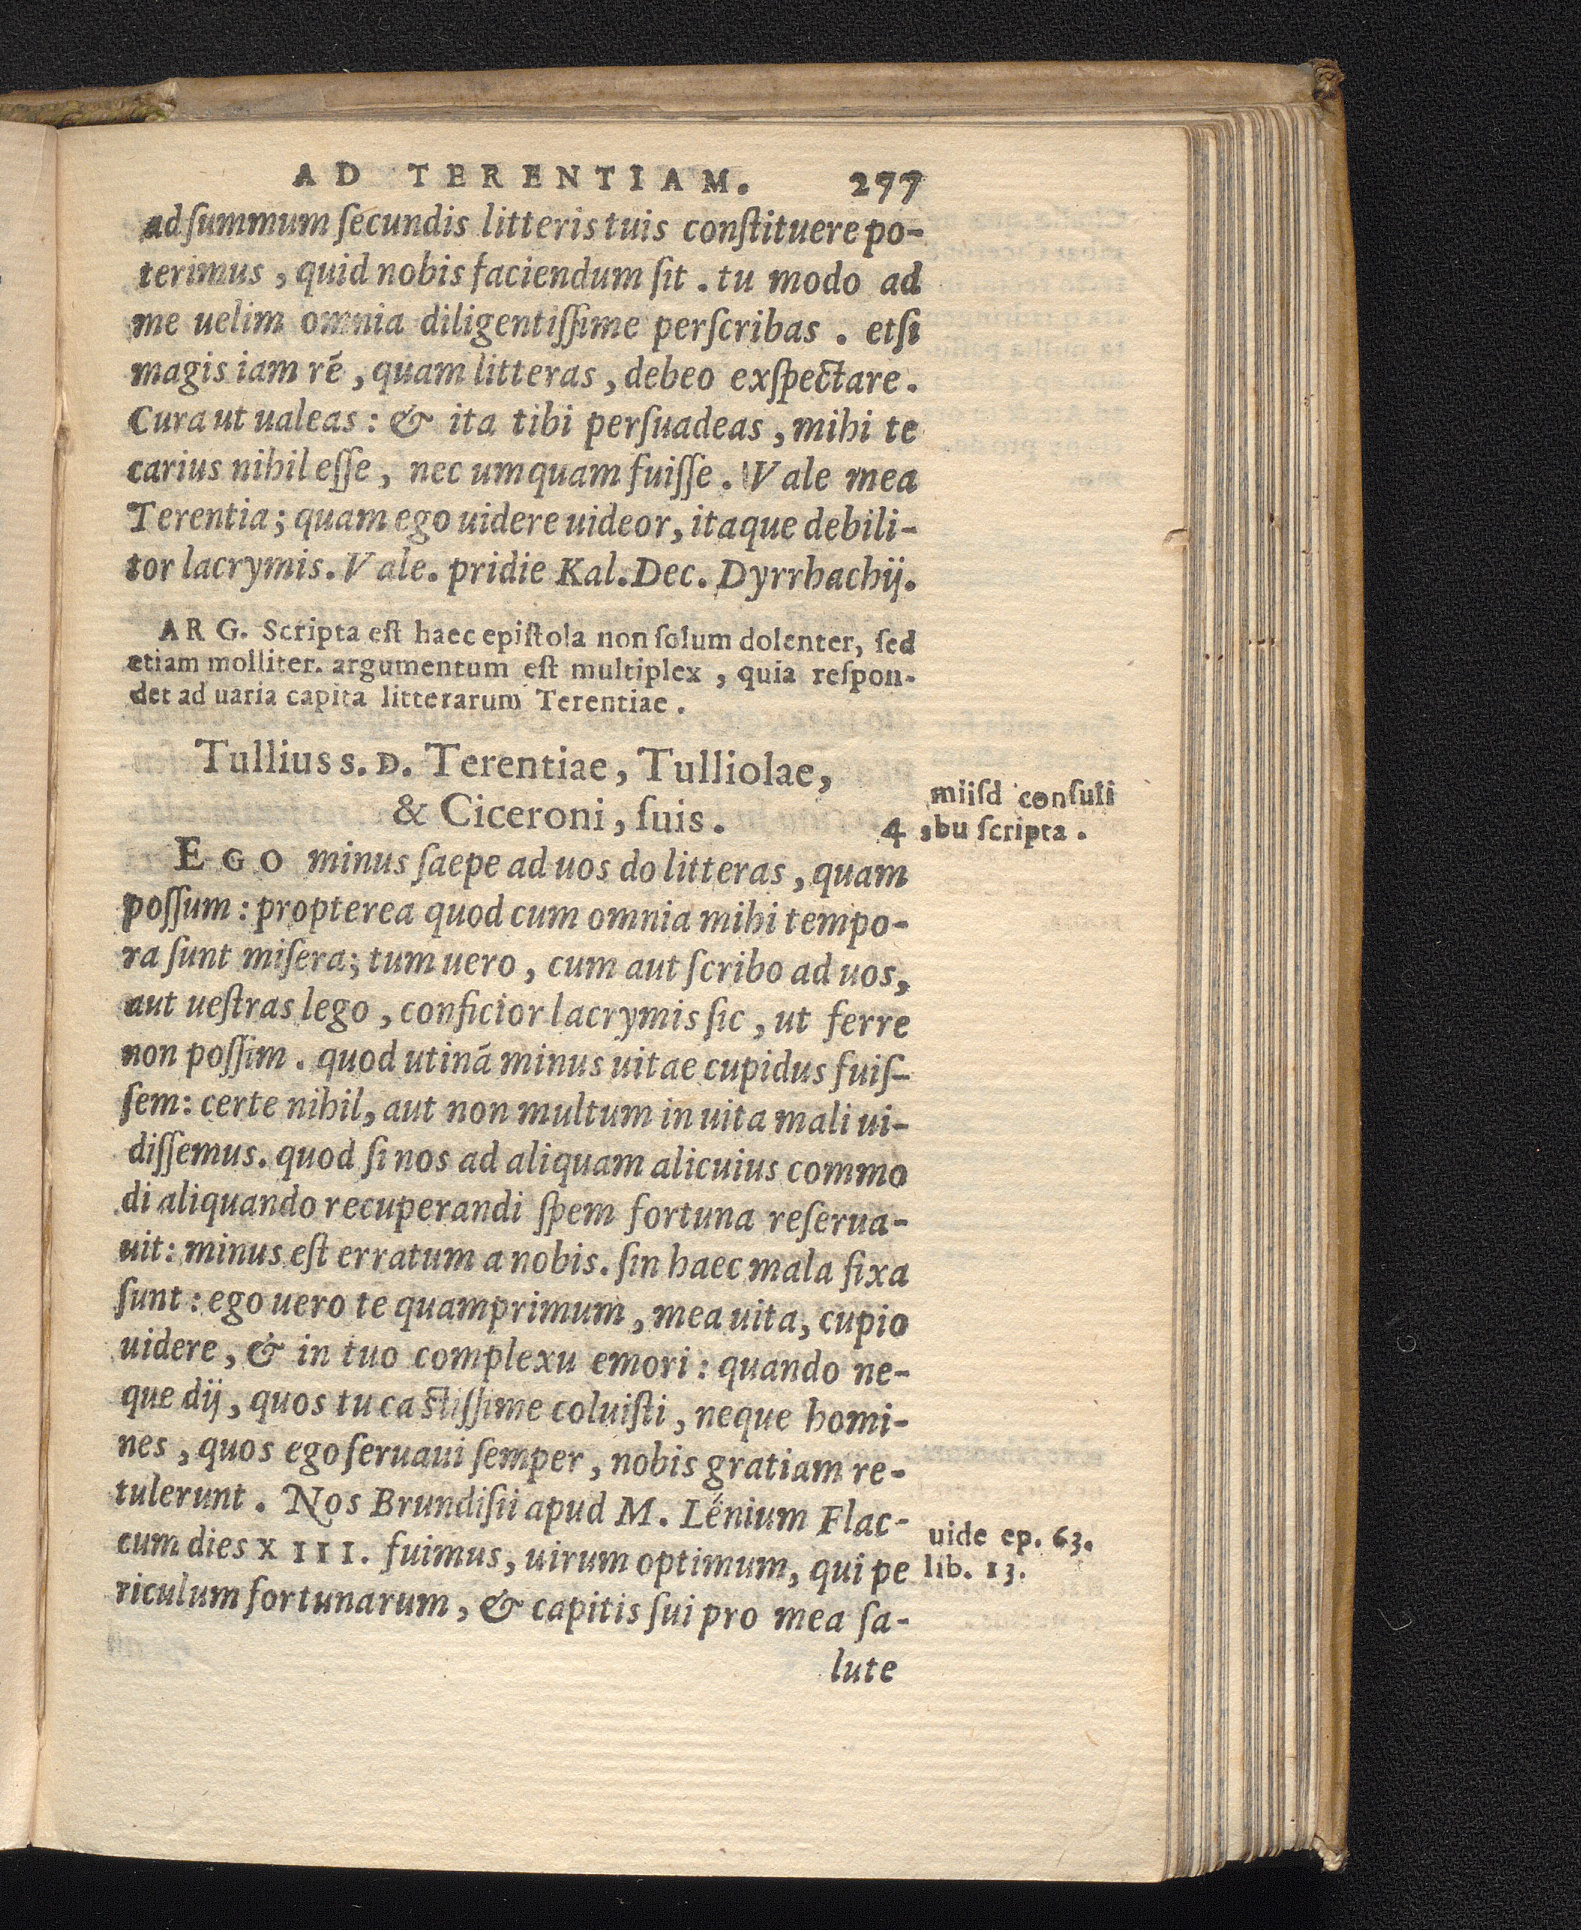 AD TERENTIAM. 277
ad ſummum ſecundis litteris tuis conſtituere po-
terimus, quid nobis faciendum ſit. tu modo ad
me uelim omnia diligentiſſime perſcribas. etſi
magis iam rē, quam litteras, debeo exſpectare.
Cura ut ualeas: & ita tibi perſuadeas, mihi te
carius nihil eſſe, nec umquam fuiſſe. Vale mea
Terentia; quam ego uidere uideor, itaque debili-
tor lacrymis. Vale. pridie Kal. Dec. Dyrrhachij.
ARG. Scripta eſt haec epiſtola non ſolum dolenter, ſed
etiam molliter. argumentum eſt multiplex, quia reſpon-
det ad uaria capita litterarum Terentiae.
Tullius s. D. Terentiae, Tulliolae,
& Ciceroni, ſuis. 4
miiſd conſuli
,bu ſcripta.
EGO minus ſaepe ad uos do litteras, quam
poſſum: propterea quod cum omnia mihi tempo-
ra ſunt miſera; tum uero, cum aut ſcribo ad uos,
aut ueſtras lego, conficior lacrymis ſic, ut ferre
non poſſim. quod utinā minus uitae cupidus fuiſ-
ſem: certe nihil, aut non multum in uita mali ui-
diſſemus. quod ſi nos ad aliquam alicuius commo
di aliquando recuperandi ſpem fortuna reſerua-
uit: minus eſt erratum a nobis. ſin haec mala fixa
ſunt: ego uero te quamprimum, mea uita, cupio
uidere, & in tuo complexu emori: quando ne-
que dij, quos tu caſtiſſime coluiſti, neque homi-
nes, quos ego ſeruaui ſemper, nobis gratiam re-
tulerunt. Nos Brundiſii apud M. Lenium Flac-
cum dies XIII. fuimus, uirum optimum, qui pe
riculum fortunarum, & capitis ſui pro mea ſa-
uide ep. 63.
lib. 13.
lute